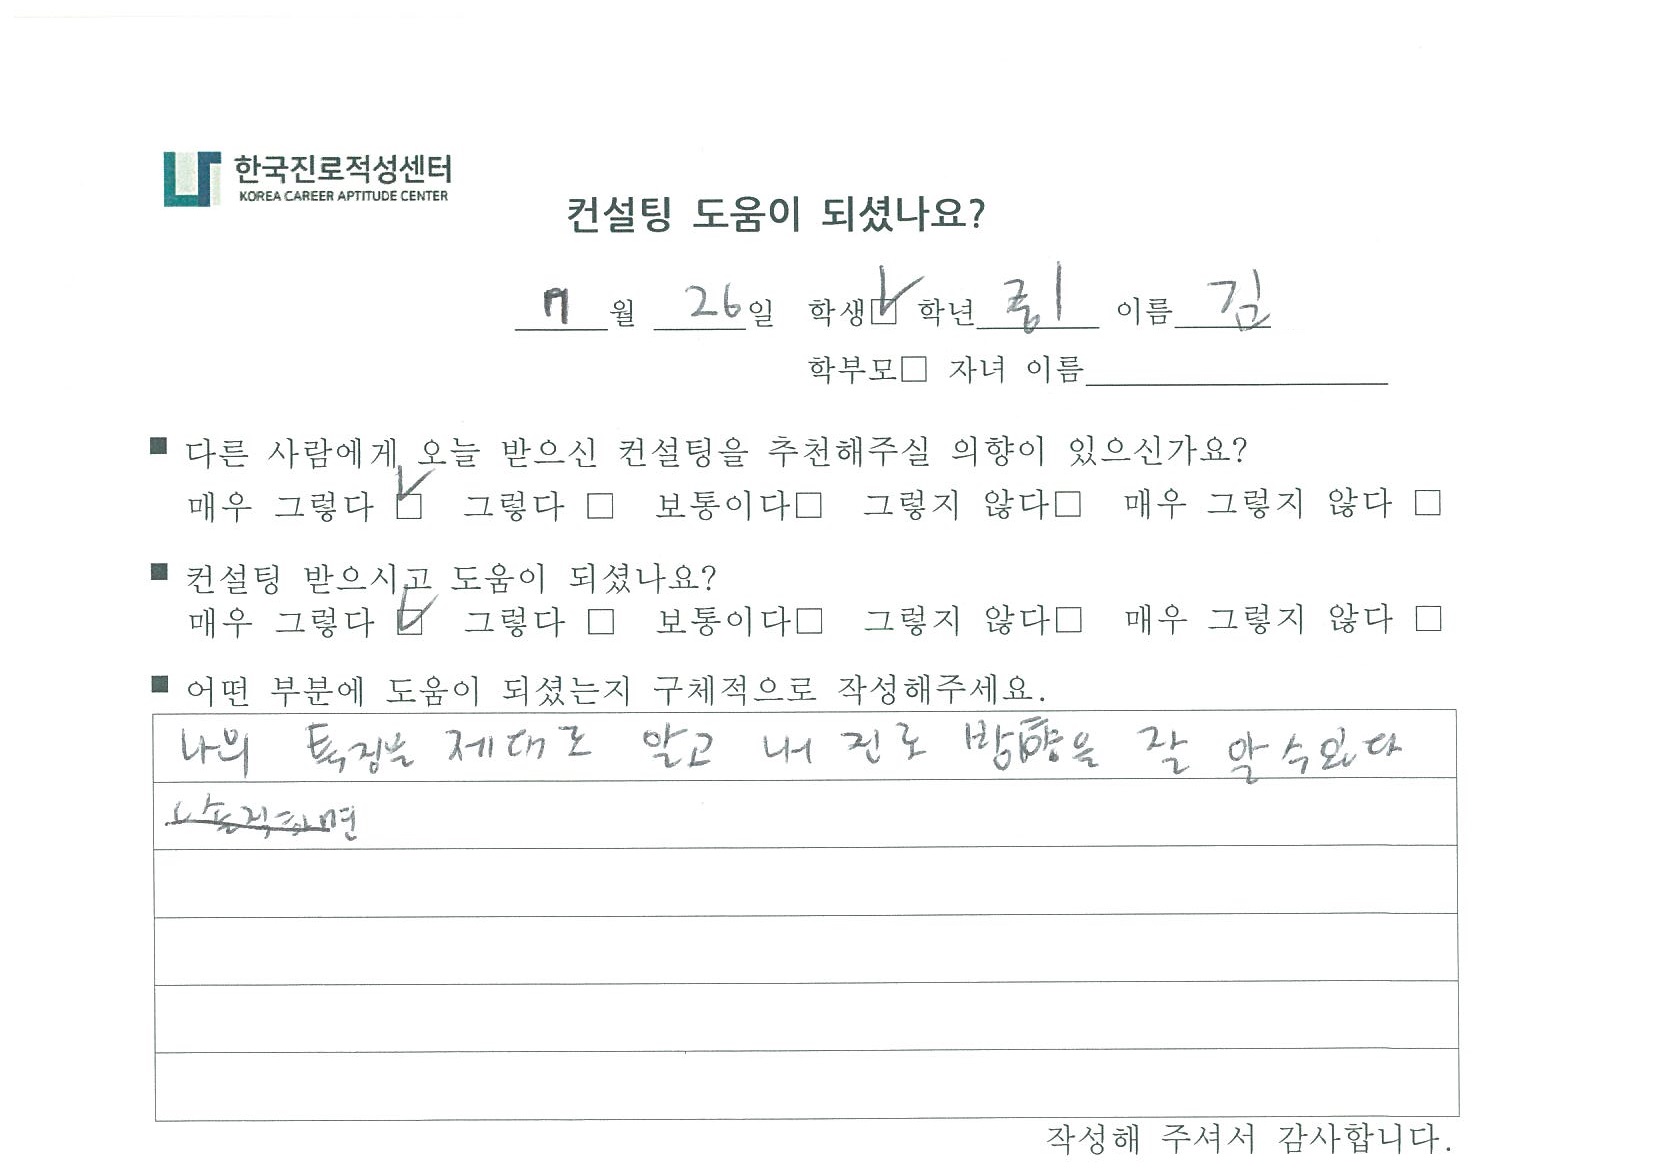 한국진로적성센터
KOREA CAREER APTITUDE CENTER
컨설팅 도움이 되셨나요?
7월 26일 학생☑ 학년 중1 이름 김
학부모□ 자녀 이름
■ 다른 사람에게 오늘 받으신 컨설팅을 추천해주실 의향이 있으신가요?
매우 그렇다 ☑ 그렇다 □ 보통이다□ 그렇지 않다□ 매우 그렇지 않다 □
■ 컨설팅 받으시고 도움이 되셨나요?
매우 그렇다 ☑ 그렇다 □ 보통이다□ 그렇지 않다□ 매우 그렇지 않다 □
■ 어떤 부분에 도움이 되셨는지 구체적으로 작성해주세요.
나의 특징을 제대로 알고 내 진로 방향을 잘 알 수있다
작성해 주셔서 감사합니다.